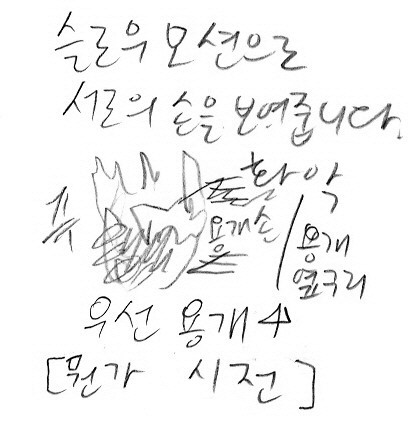 슬로우 모션으로
서로의 손을 보여줍니다.
콱악
용개손
용개
옆구리
우선 용개 4
[뭔가 시전]